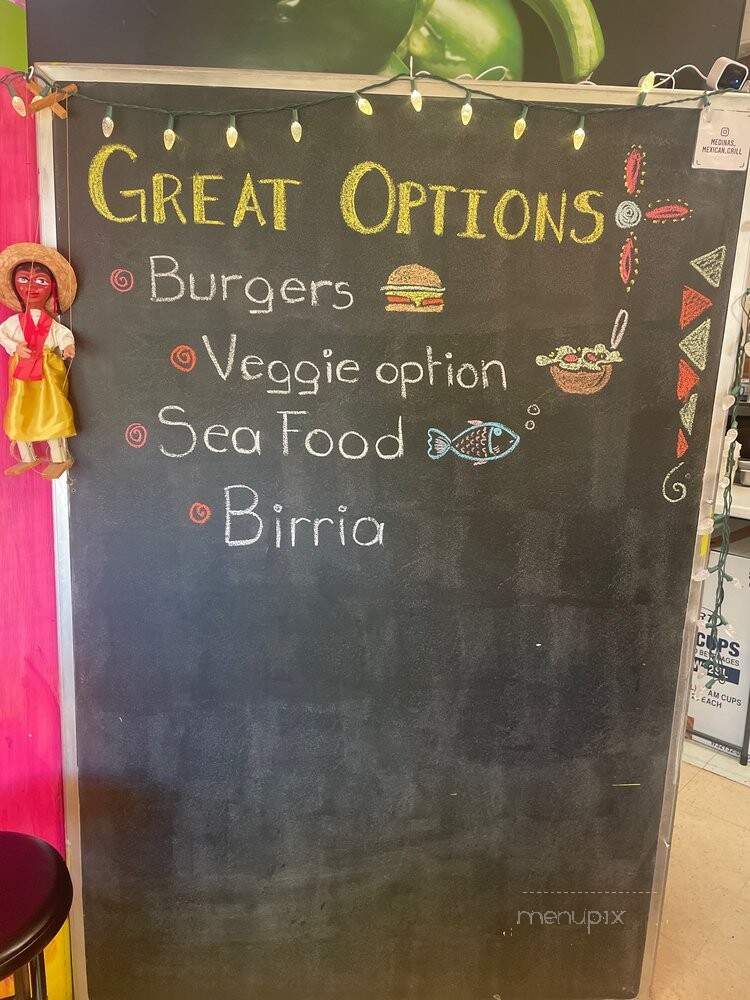 MEDINAS_
MEXICAN_GRILL
GREAT OPTIONS
Burgers
Veggie option
Sea Food
Birria
CUPS
BEVERAGES
AM CUPS
EACH
menupix